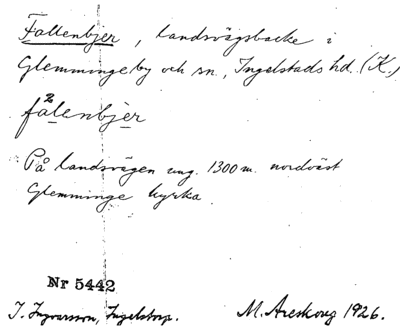 Fallenbjer, landsvägsbacke i
Glemmingeby och sn., Ingelstads hd. (K.)
fa2lenbjer
På landsvägen ung. 1300 m. nordväst
Glemminge kyrka.
Nr 5442
I. Ingvarsson, Ingelstorp. M. Areskoug 1926.